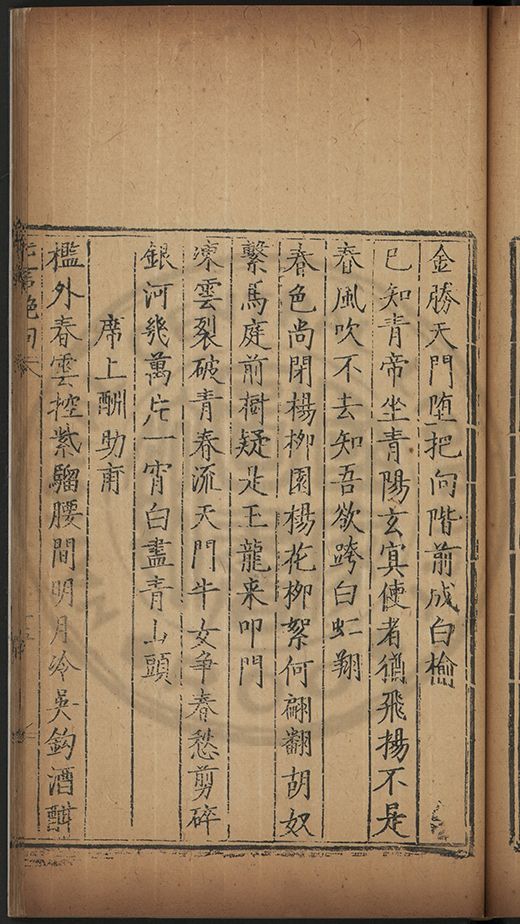 金勝天門墮把向階前成白榆
已知青帝坐青陽玄㝠使者猶飛揚不是
春風吹不去知吾欲跨白虹翔
春色尚閉楊柳園楊花柳絮何翩翻胡奴
繫馬庭前樹疑是玉龍来叩門
凍雲裂破青春流天門牛女争春愁剪碎
銀河幾萬片一宵白盡青山頭
席上酬助甫
檻外春雲控紫騮腰間明月冷吳鈎酒酣